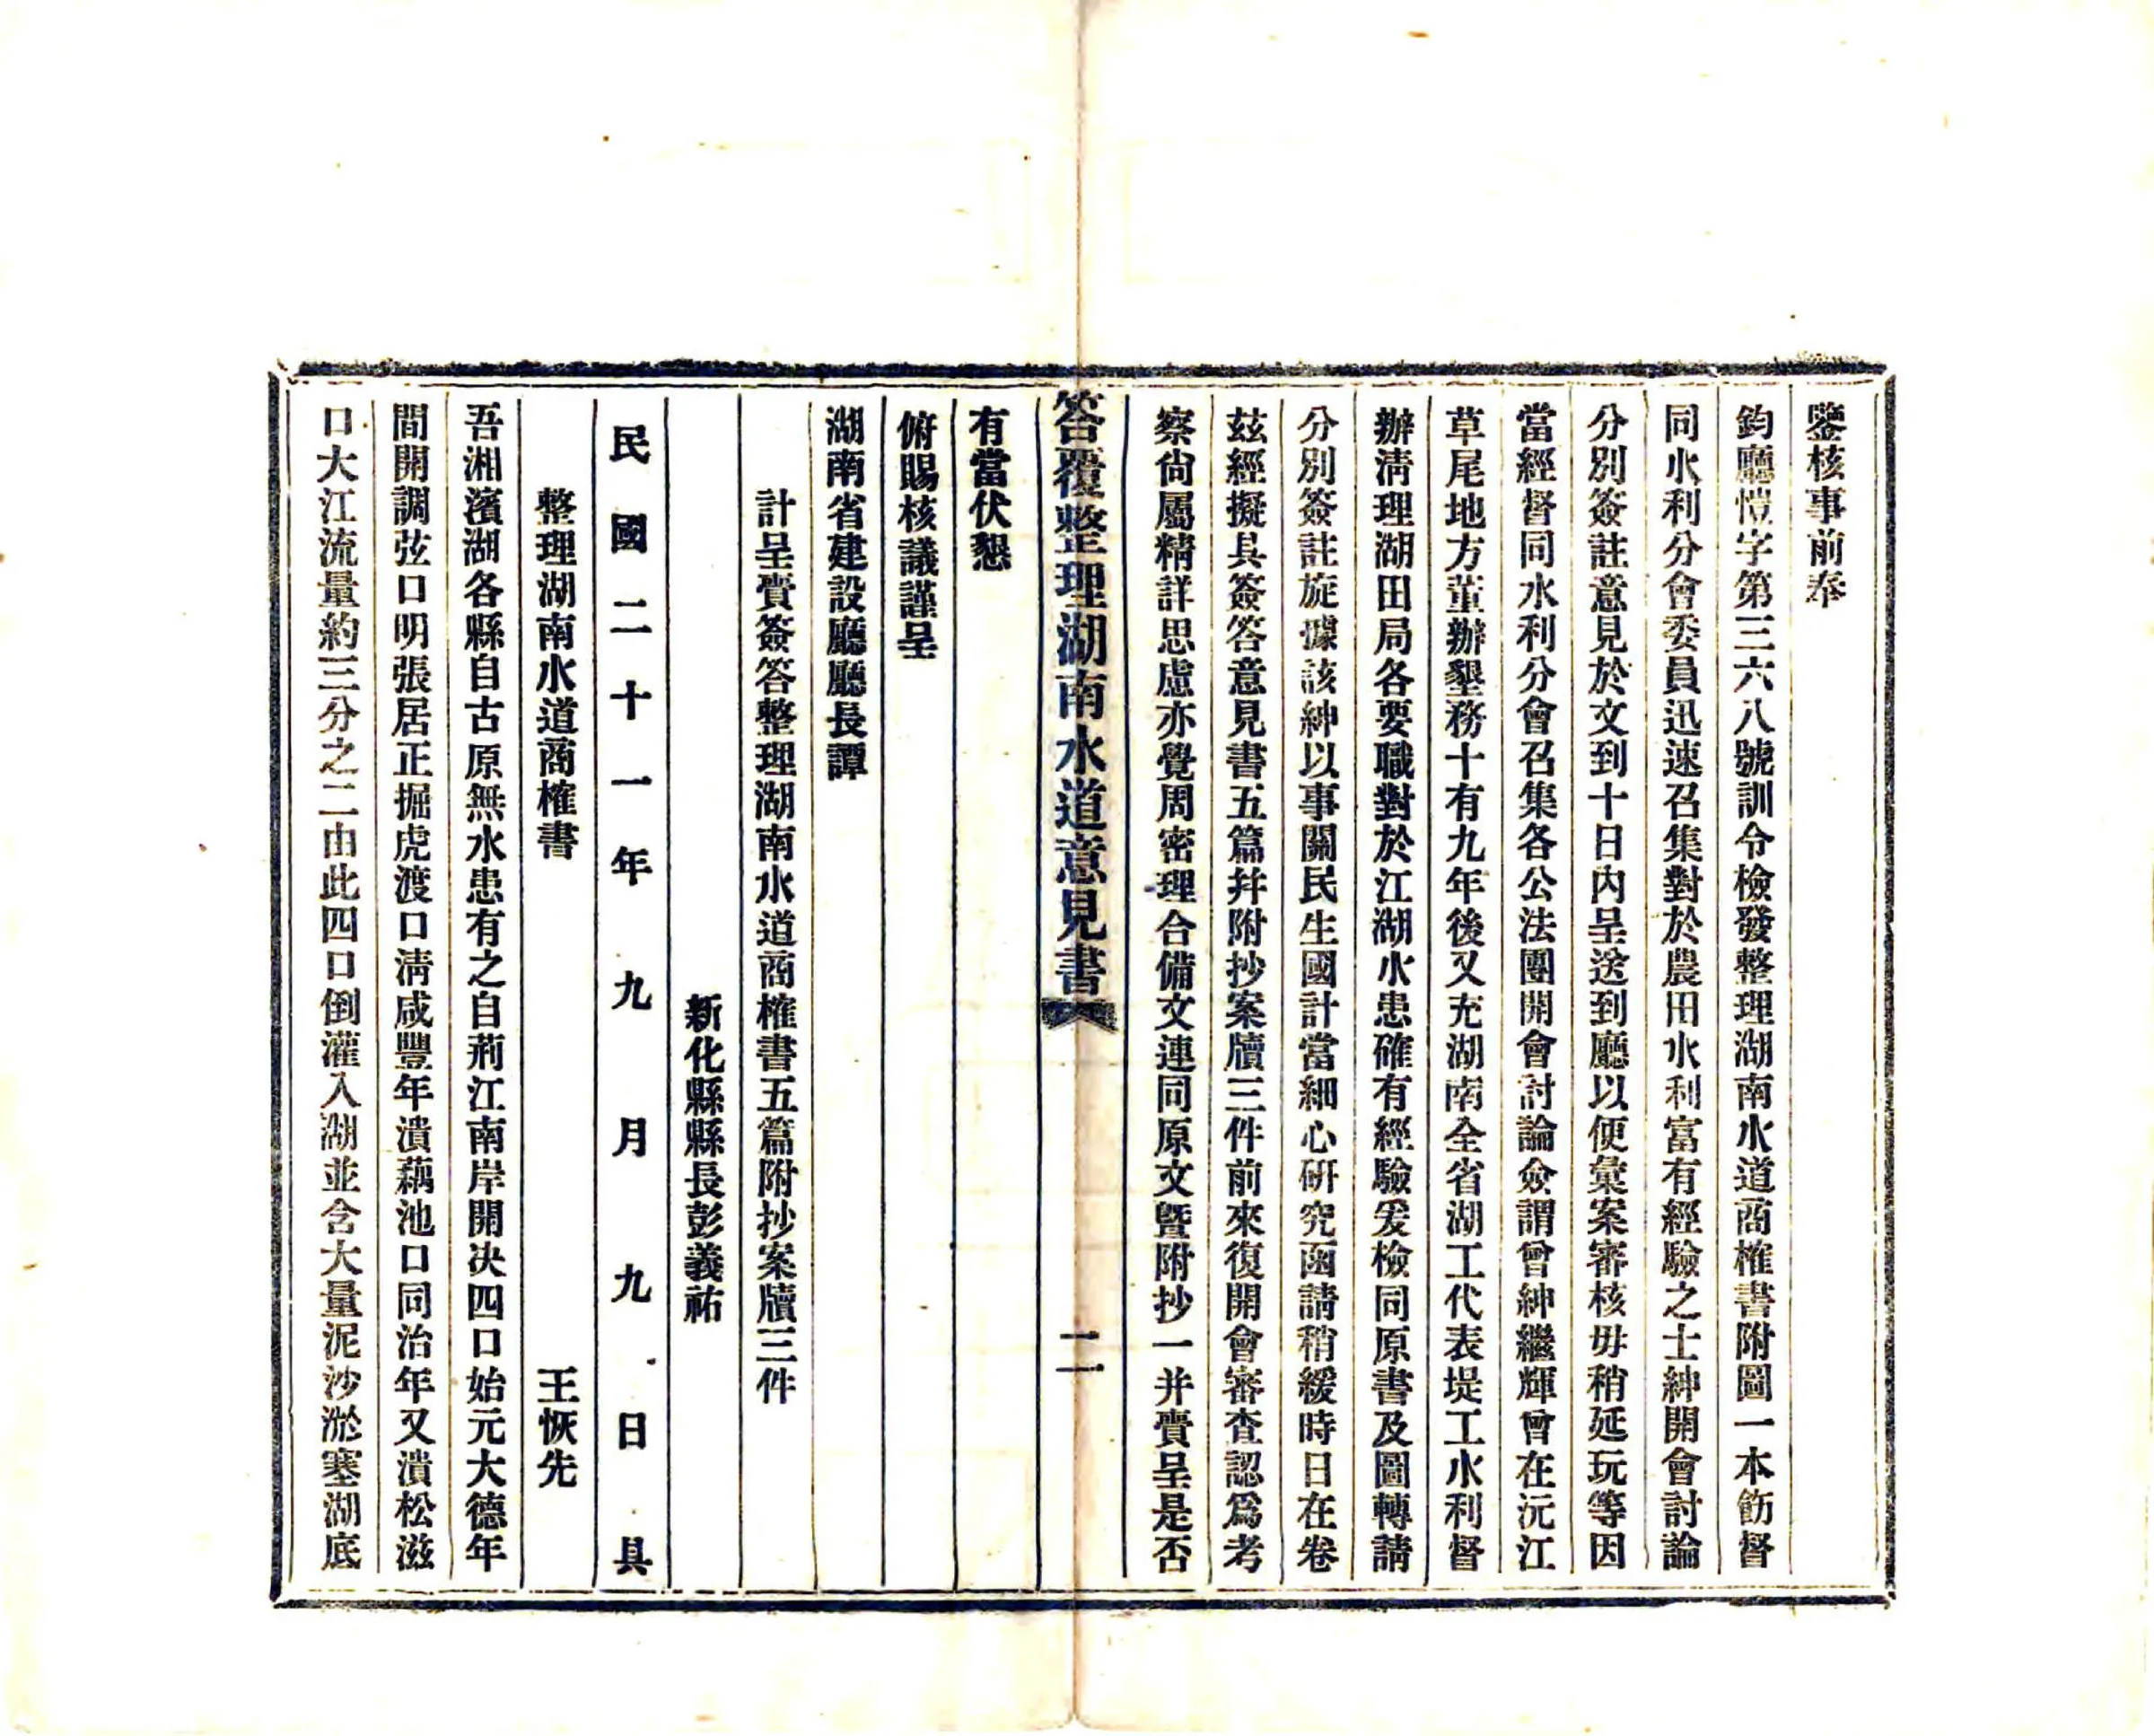 鑒核事前奉
鈞廳愷字第三六八號訓令檢發整理湖南水道商榷書附圖一本飭督
同水利分會委員迅速召集對於農田水利富有經驗之士紳開會討論
分別簽註意見於文到十日內呈送到廳以便彙案審核毋稍延玩等因
當經督同水利分會召集各公法團開會討論僉謂曾紳繼輝曾在沅江
草尾地方董辦墾務十有九年後又充湖南全省湖工代表堤工水利督
辦清理湖田局各要職對於江湖水患確有經驗爰檢同原書及圖轉請
分別簽註旋據該紳以事關民生國計當細心研究函請稍緩時日在卷
茲經擬具簽答意見書五篇幷附抄案牘三件前來復開會審查認爲考
察尙屬精詳思慮亦覺周密理合備文連同原文曁附抄一并賫呈是否
答覆整理湖南水道意見書
二
有當伏懇
俯賜核議謹呈
湖南省建設廳廳長譚
計呈賫簽答整理湖南水道商榷書五篇附抄案牘三件
新化縣縣長彭義祐
民國二十一年九月九日具
整理湖南水道商榷書
王恢先
吾湘濱湖各縣自古原無水患有之自荊江南岸開決四口始元大德年
間開調弦口明張居正掘虎渡口清咸豐年潰藕池口同治年又潰松滋
口大江流量約三分之二由此四口倒灌入湖並含大量泥沙淤塞湖底